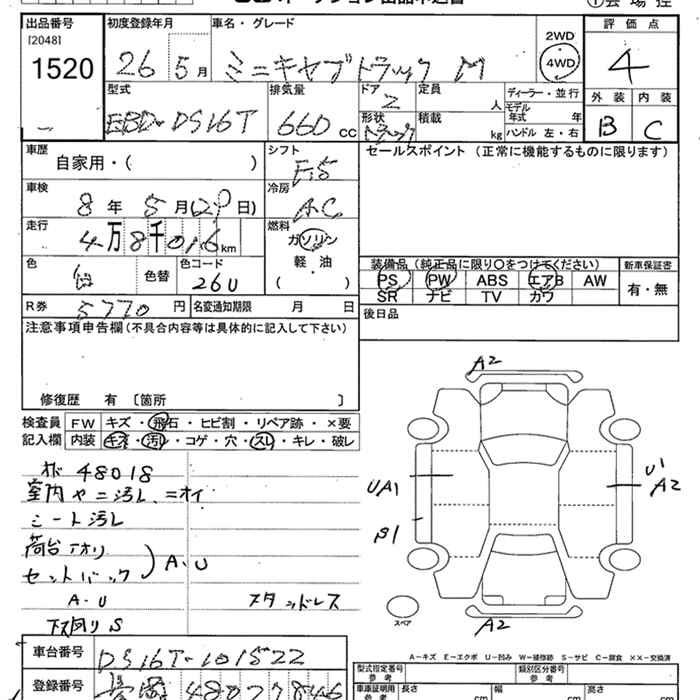 出品番号 初度登録年月 車名・グレード 評価点
[2048]
1520
26 5月 ミニキャブトラック M 2WD 4WD 4
型式 排気量 ドア 定員 ディーラー・並行 外装 内装
EBD-DS16T 660 cc 2 人 モデル年式 年 B C
形状 トラック 積載 kg ハンドル 左・右
車歴 シフト セールスポイント (正常に機能するものに限ります)
自家用・( ) F5
車検 冷房
8年 5月(29日) AC
走行 燃料
4万8千016km ガソリン
軽・油
( )
色 色替 色コード 26U
装備品 (純正品に限り○をつけてください) 新車保証書
PS PW ABS エアB AW 有・無
SR ナビ TV カワ
R券 5770円 名変通知期限 月 日
後日品
注意事項申告欄(不具合内容等は具体的に記入して下さい)
修復歴 有 〔箇所 〕
検査員 FW キズ・飛石・ヒビ割・リペア跡・×要
記入欄 内装 キズ・汚レ・コゲ・穴・スレ・キレ・破レ
48018
室内ヤニ汚レ ニオイ
シート汚レ
荷台アオリ
セットバック
A・U
A-U スタッドレス
下廻りS
A2
UA1
U1
A2
S1
スペア
A2
A-キズ E-エクボ U-凹み W-補修跡 S-サビ C-腐食 ××-交換済
車台番号 DS16T-101522
登録番号
型式指定番号 参考 類別区分番号 参考
車庫証明用 参考 長さ cm 幅 cm 高さ cm